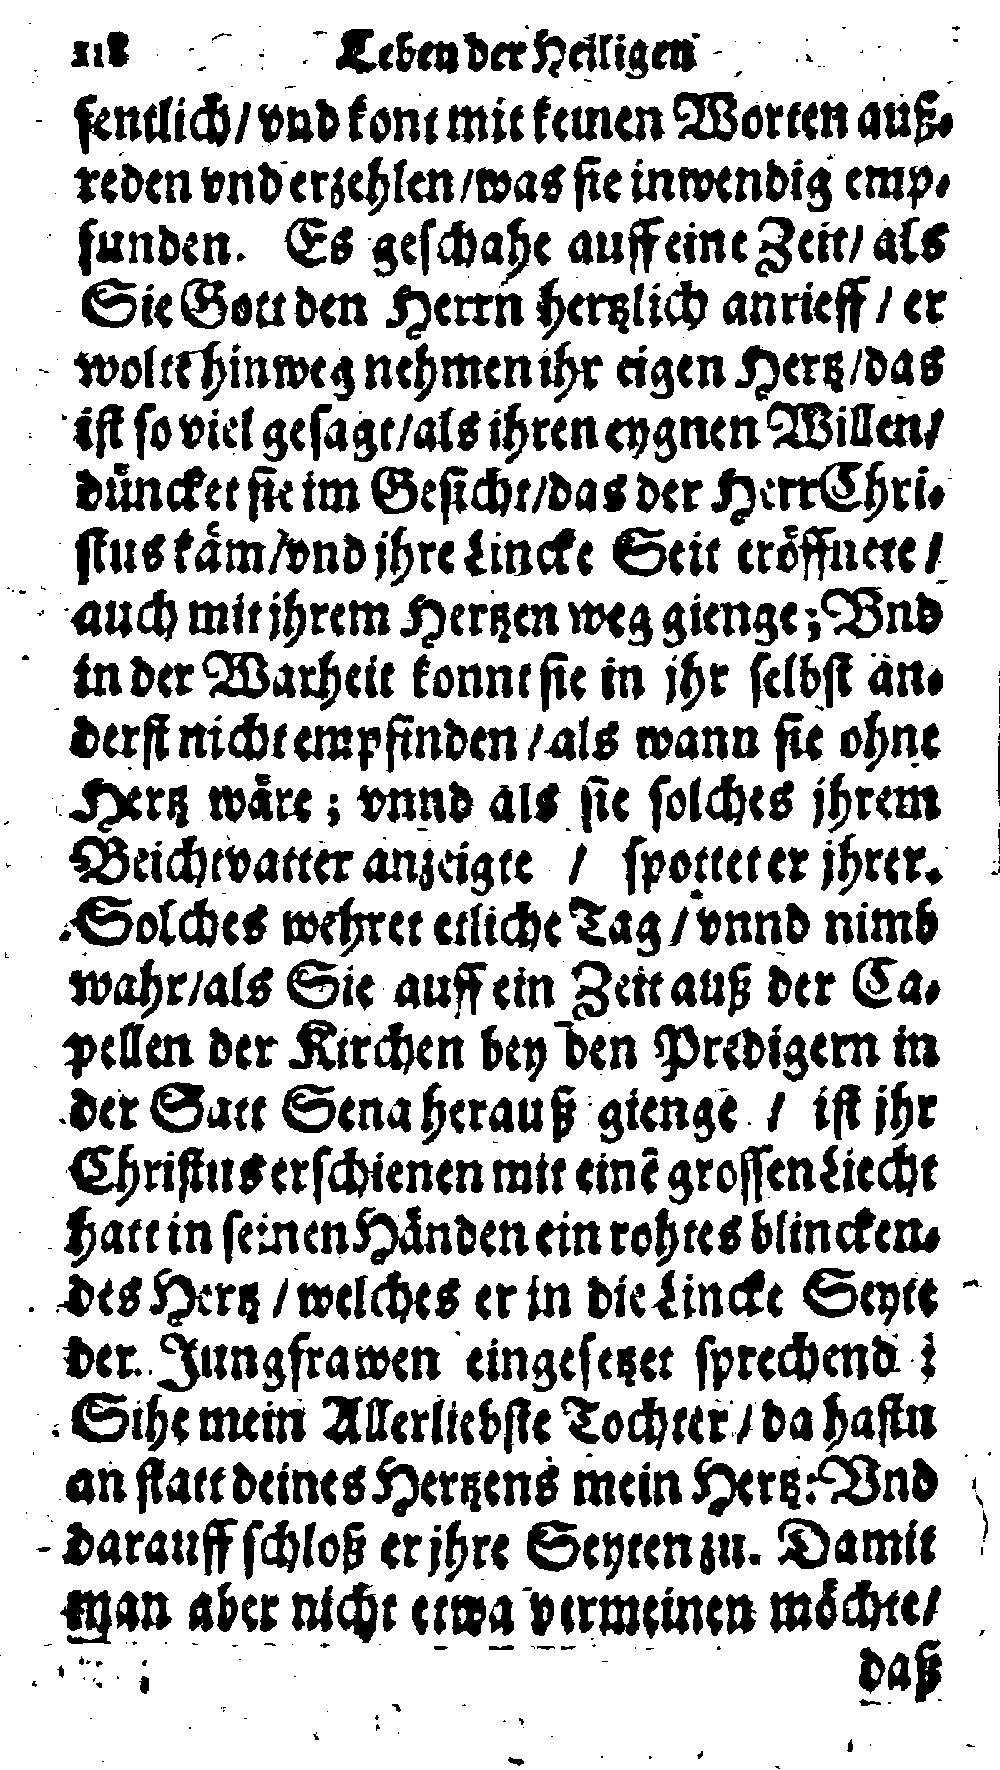 118 Leben der Heiligen
sentlich/ vnd kont mit keinen Worten auß-
reden vnd erzehlen/ was sie inwendig emp-
funden. Es geschahe auff eine Zeit/ als
Sie Gott den Herrn hertzlich anrieff / er
wolte hinweg nehmen ihr eigen Hertz/ das
ist so viel gesagt/ als ihren eygnen Willen/
düncket sie im Gesicht/ das der Herr Chri-
stus käm/ vnd jhre Lincke Seit eröffnete /
auch mit jhrem Hertzen weg gienge; Vnd
in der Warheit konnt sie in jhr selbst an-
derst nicht empfinden / als wann sie ohne
Hertz wäre ; vnnd als sie solches jhrem
Beichtvatter anzeigte / spottet er jhrer.
Solches wehret etliche Tag / vnnd nimb
wahr/ als Sie auff ein Zeit auß der Ca-
pellen der Kirchen bey den Predigern in
der Satt Sena herauß gienge / ist jhr
Christus erschienen mit einē grossen Liecht
hatt in seinen Händen ein rohtes blincken-
des Hertz / welches er in die Lincke Seyte
der Jungfrawen eingesetzet sprechend :
Sihe mein Allerliebste Tochter / da hastu
an statt deines Hertzens mein Hertz: Vnd
darauff schloß er jhre Seyten zu. Damit
man aber nicht etwa vermeinen möchte/
daß